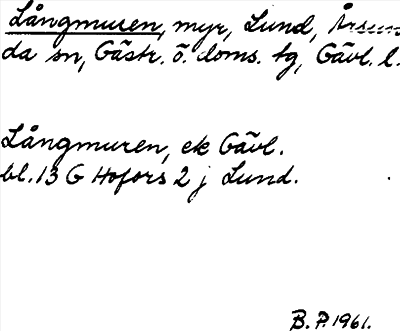 Långmuren, myr, Lund, Årsun
da sn, Gästr. ö. doms. tg, Gävl. l.
Långmuren, ek Gävl.
bl. 13 G Hofors 2 j Lund.
B. P. 1961.